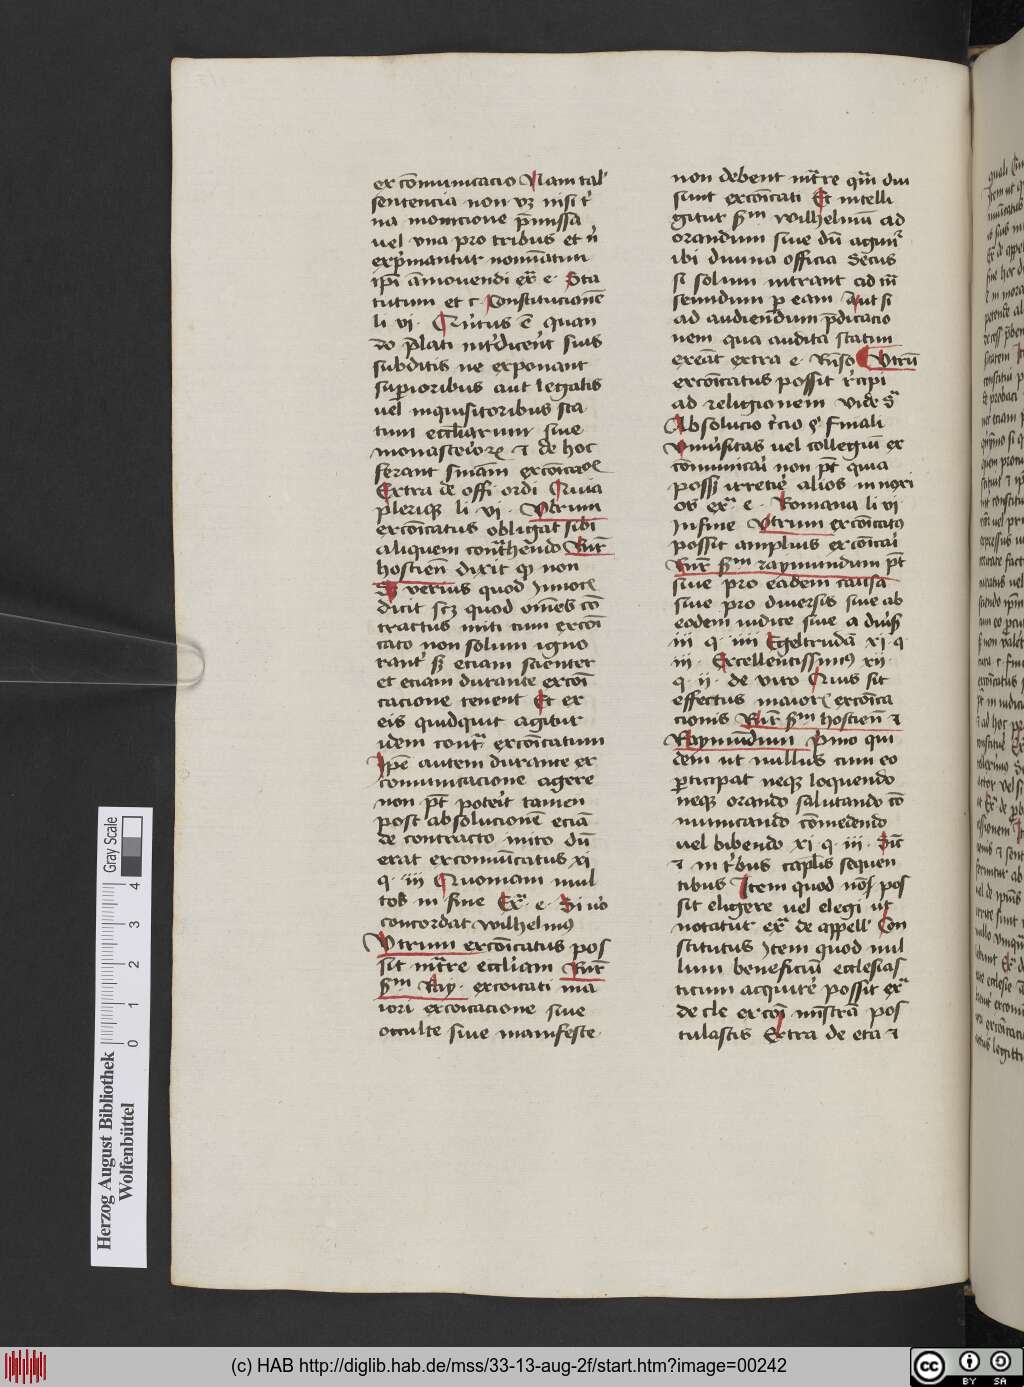 excōmunicacio Nam tal'
sentencia non vꝫ nisi t'
na monicione p̄missa
vel vna pro tribus et n̄
exp'mantur nominatim
ip̄i āmouendi ex̄ e Sta
tutum et c Constitucionē
li vi Cui'tus ē quan
do p̄lati int'dicen't suis
subditis ne exponant
sup̄ioribus aut legatis
uel inquisitoribus sta
tum eccl'iarum siue
monasterioꝝ ⁊ de hoc
ferant sniām excōicacōe
Extra de offi ordi Quia
pleriqꝫ li vi Vtrum
excōicatus obligat sibi
aliquem cont'hendo Rn̄r
hostien̄ dixit qꝫ non
Sꝫ verius quod Innoc
dicit scꝫ quod om̄es cō
tractus initi cum excōi
cato non solum igno
rant' sꝫ etiam scienter
et etiam durante excōi
cacione tenent Et ex
eis quidquit agitur
idem cont' excōicatum
Ip̄e autem durante ex
comunicacione agere
non p̄t poterit tamen
post absolucionē etiā
de contracto inito dū
erat excomūicatus xi
q iii Quoniam mul
tos in fine Ex̄ e Si v'o
concordat wilhelmus
Vtrum excōicatus pos
sit int're eccl'iam Rn̄r
sm̄ Ray excōicati ma
iori excōicacione siue
occulte siue manifeste
non debent int're qm̄ diu
sunt excōicati Et intelli
gitur sm̄ wilhelmū ad
orandum siue dū agunt'
ibi diuina officia Secus
si solum intrant ad t'n
seundum p eam Aut si
ad audiendum p̄dicacio
nem qua audita statim
exeāt extra e Rn̄so Vtrū
excōicatus possit r'cipi
ad religionem vide sꝰ
Absolucio t'cio § finali
Vniu'sitas uel collegiū ex
cōmunicari non p̄t quia
possꝫ irretire alios innoxi
os ex̄ e Romana li vi
In fine Vtrum excōicatꝰ
possit amplius excōicari
Rn̄r sm̄ raymundum p̄t
siue pro eadem causa
siue pro diuersis siue ab
eodem iudice siue a diu'sis
iii q iiii Egeltrudā xi q
iii Excellentissimꝰ xii
q ii de viro Cuius sit
effectus maior excōica
cionis Rn̄r sm̄ hostien̄ ⁊
Raymundum Primo qui
dem ut nullus cum eo
p̄ticipat neqꝫ loquendo
neqꝫ orando salutando cō
municando cōmedendo
uel bibendo xi q iii Sic̄
⁊ in t'bus capl'is sequen
tibus Item quod nō pos
sit eligere uel elegi ut
notatur ex̄ de appell' Con
stitutus Item quod nul
lum beneficiū ecclesias
ticum acquire' possit ex̄
de cle excōi minstrā pos
tulastis Extra de eta ⁊
Herzog August Bibliothek
Wolfenbüttel
0 1 2 3 4
Gray Scale
(c) HAB http://diglib.hab.de/mss/33-13-aug-2f/start.htm?image=00242
cc BY SA